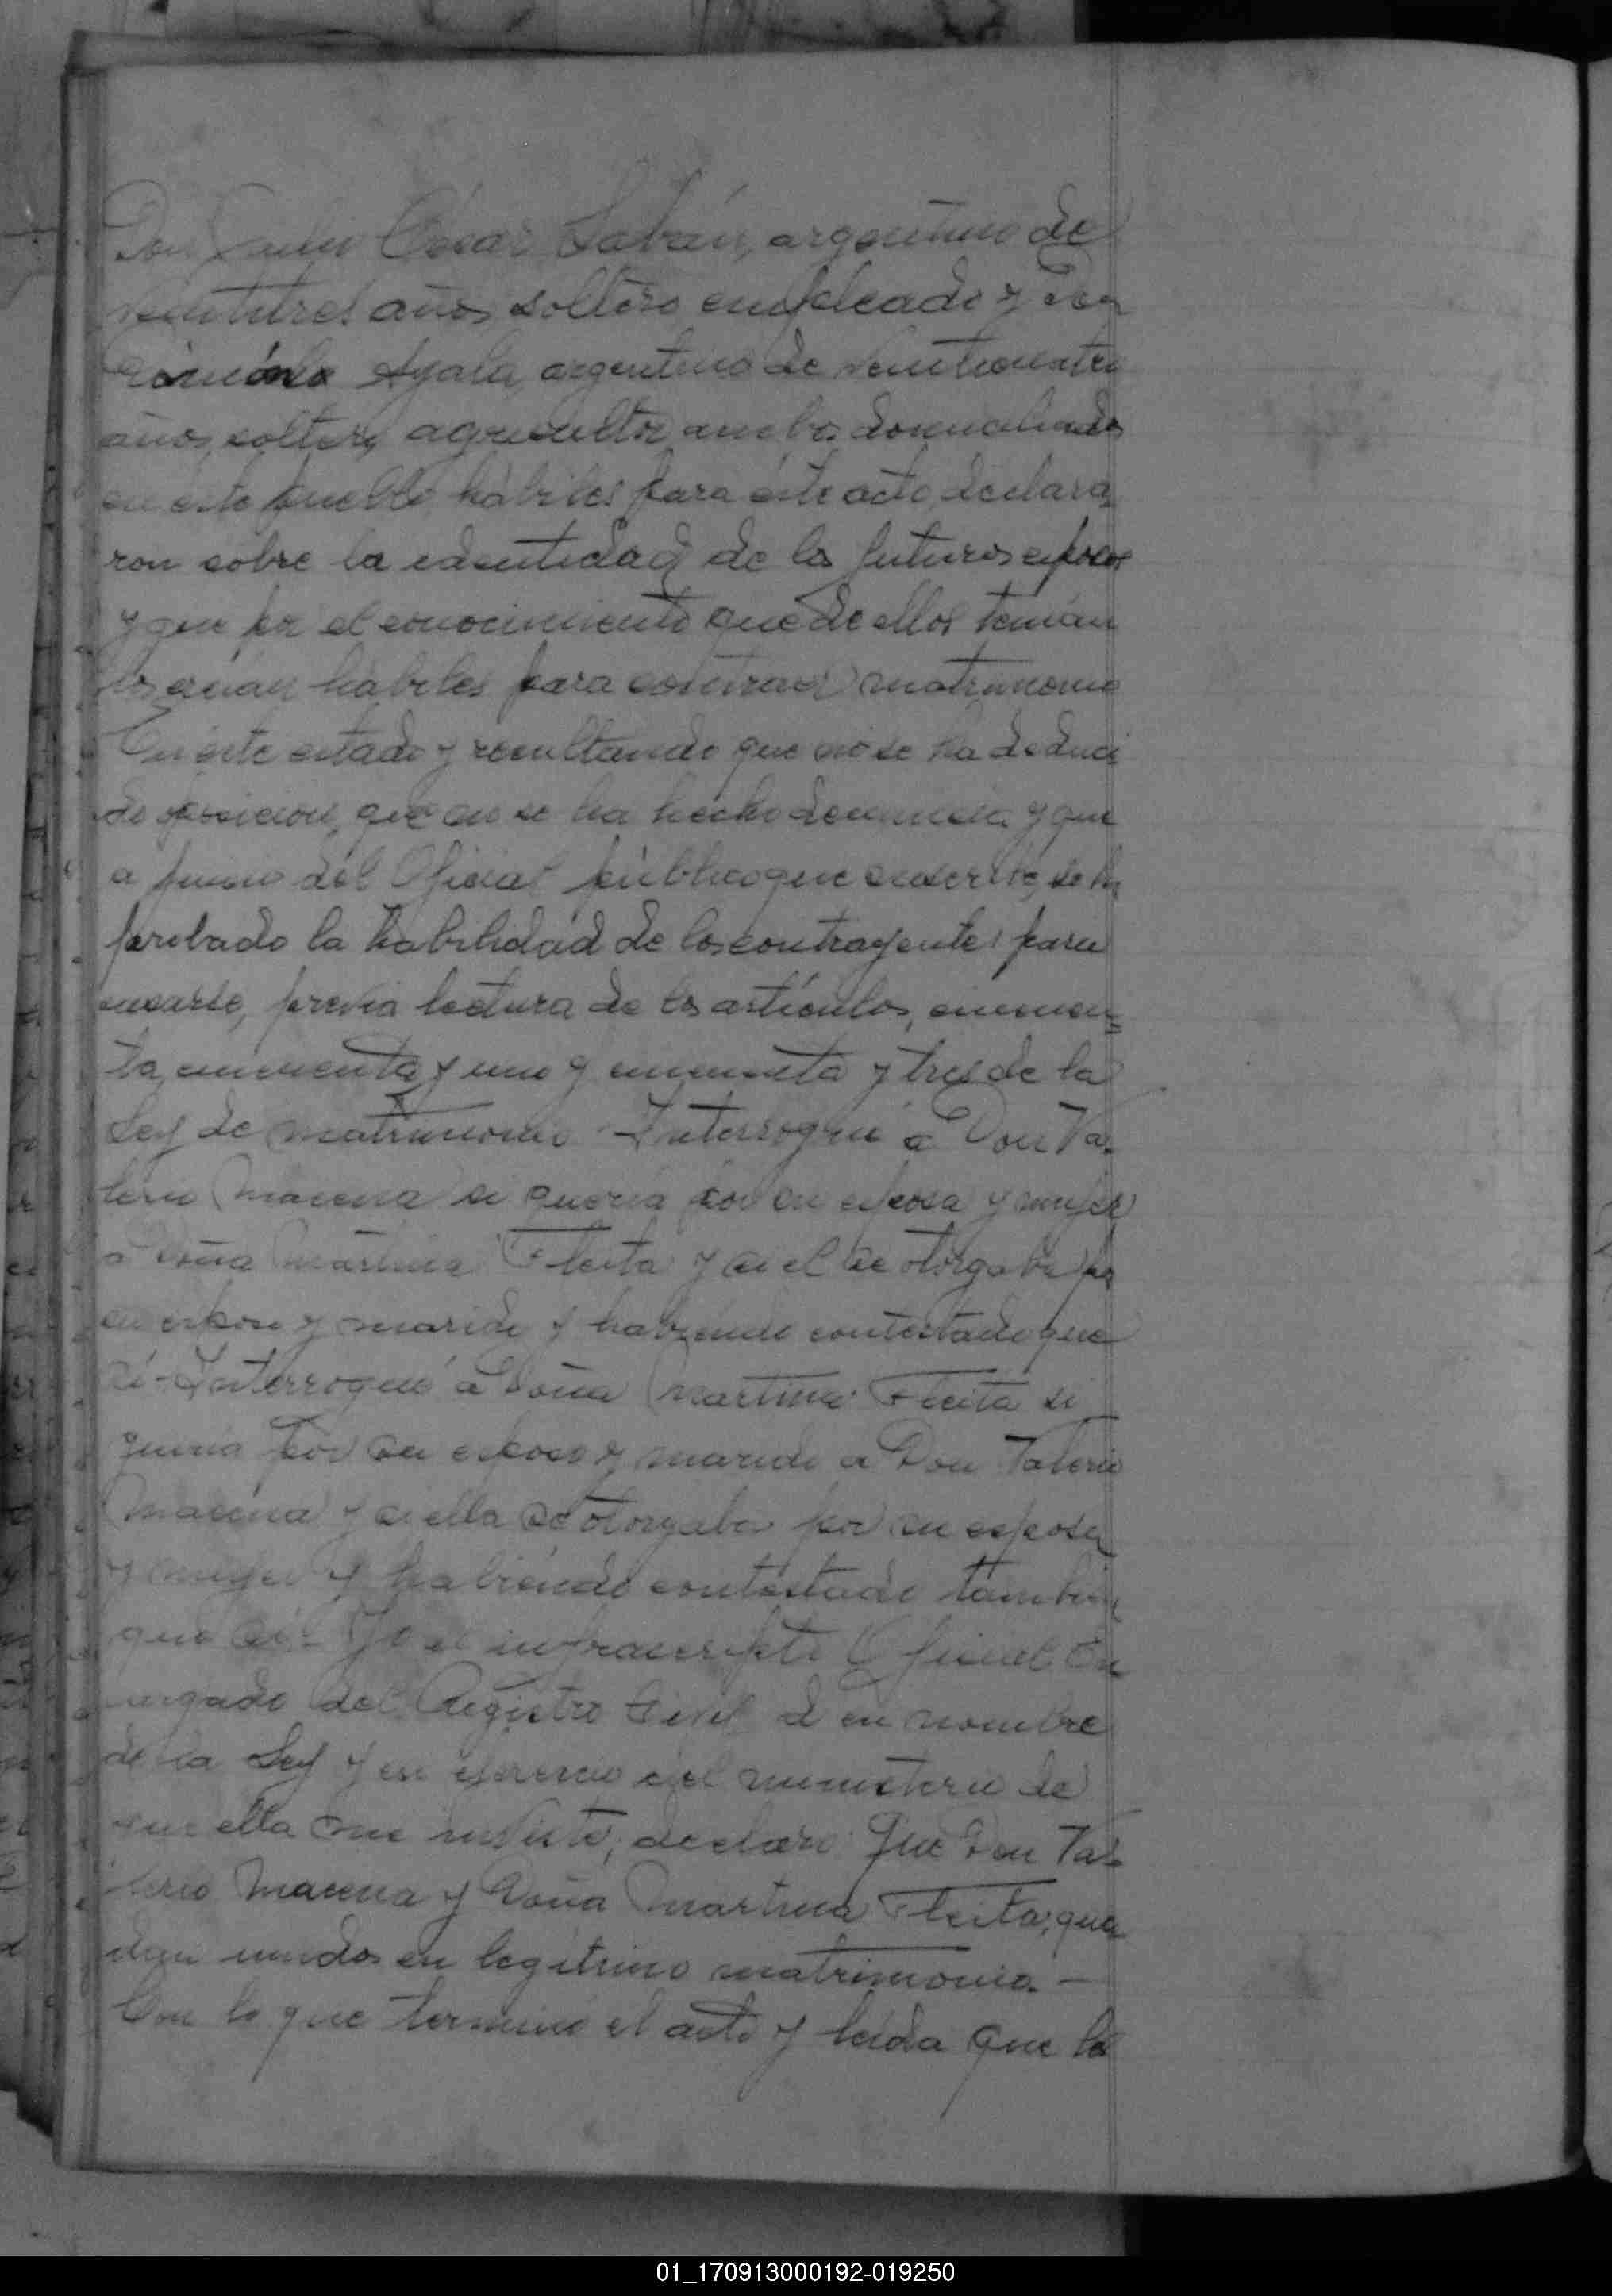 Don Julio César Sabán, argentino de
veintitres años, soltero empleado y Don
Ayala, argentino de veinticuatro
años, soltero, agricultor ambos domiciliados
en este pueblo, hábiles para este acto, declara-
ron sobre la identidad de los futuros esposos
y que por el conocimiento que de ellos tenian
los creian hábiles para contraer matrimonio
En este estado y resultando que no se ha deduci
do oposicion, que no se ha hecho denuncia y que
a juicio del Oficial público que suscribe, se ha
probado la habilidad de los contrayentes para
casarse, previa lectura de los artículos, cincuen-
ta, cincuenta y uno y cincuenta y tres de la
Ley de matrimonio Interrogué a Don Va-
lerio Macena si queria por su esposa y mujer
a Doña Martina Fleita y si el se otorgaba por
su esposo y marido y habiendo contestado que
si- Interrogué a Doña Martina Fleita si
queria por su esposo y marido a Don Valerio
Macena y si ella se otorgaba por su esposa
y mujer y habiendo contestado tambien
que si- Yo el infrascripto Oficial En
cargado del Registro Civil en nombre
de la Ley y en ejercicio del ministerio de
que ella me inviste, declaro: Que Don Va-
lerio Macena y Doña Martina Fleita, que
dan unidos en legitimo matrimonio. —
Con lo que terminó el acto y leida que les
01_170913000192-019250